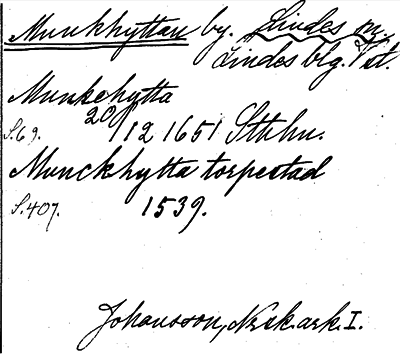 Munkhyttan by. Lindes sn.
Lindes blg. Vstl.
Munkehytta
S. 69. 20/12 1651 Sthlm.
Munckhytta torpestad
S. 407. 1539.
Johansson, Nrsk. ark. I.